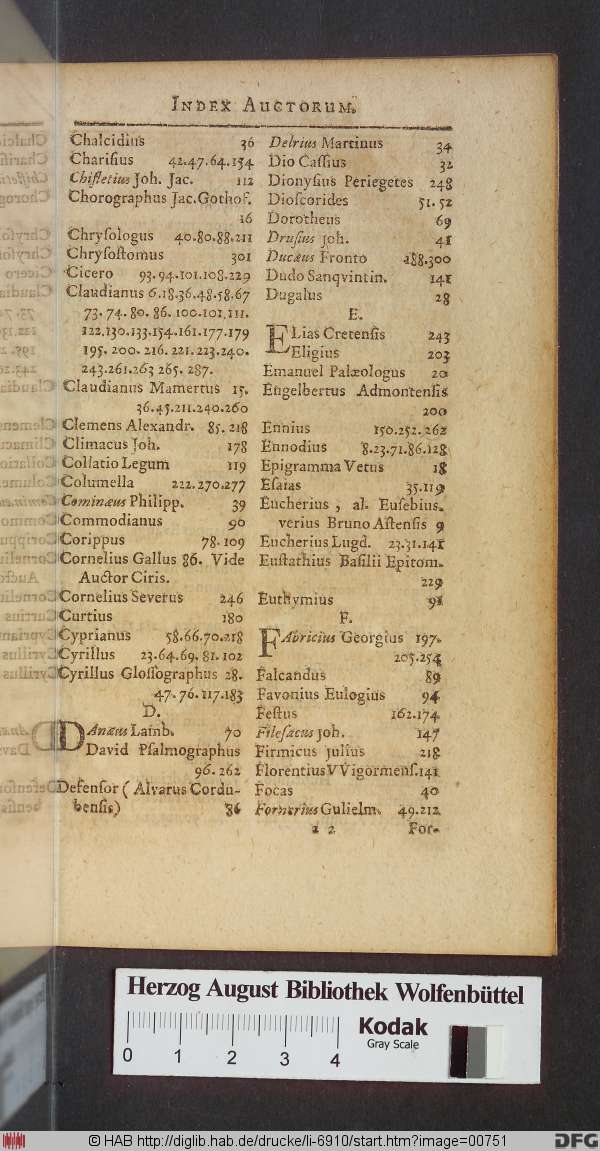 INDEX AUCTORUM.
Chalcidius 36
Charisius 42.47.64.154
Chifletius Joh. Jac. 112
Chorographus Jac. Gothof.
16
Chrysologus 40.80.88.211
Chrysostomus 301
Cicero 93.94.101.108.229
Claudianus 6.18.36.48.58.67
73.74.80.86.100.101.111.
122.130.133.154.161.177.179
195.200.216.221.223.240.
243.261.263 265.287.
Claudianus Mamertus 15.
36.45.211.240.260
Clemens Alexandr. 85.218
Climacus Joh. 178
Collatio Legum 119
Columella 222.270.277
Cominæus Philipp. 39
Commodianus 90
Corippus 78.109
Cornelius Gallus 86. Vide
Auctor Ciris.
Cornelius Severus 246
Curtius 180
Cyprianus 58.66.70.218
Cyrillus 23.64.69.81.102
Cyrillus Glossographus 28.
47.76.117.183
D.
DAnæus Lamb. 70
David Psalmographus
96.262
Defensor (Alvarus Cordu-
bensis) 86
Delrius Martinus 34
Dio Cassius 32
Dionysius Periegetes 248
Dioscorides 51.52
Dorotheus 69
Drusius Joh. 41
Ducæus Fronto 288.300
Dudo Sanqvintin. 141
Dugalus 28
E.
ELias Cretensis 243
Eligius 203
Emanuel Palæologus 20
Engelbertus Admontensis
200
Ennius 150.252.262
Ennodius 8.23.71.86.128
Epigramma Vetus 18
Esaias 35.119
Eucherius, al. Eusebius.
verius Bruno Astensis 9
Eucherius Lugd. 23.31.141
Eustathius Basilii Epitom.
229
Euthymius 91
F.
FAbricius Georgius 197.
205.254
Falcandus 89
Favonius Eulogius 94
Festus 162.174
Filesacus Joh. 147
Firmicus Julius 218
Florentius VVigornens. 141
Focas 40
Fornerius Gulielm. 49.212
2 2 For-
Herzog August Bibliothek Wolfenbüttel
0 1 2 3 4
Kodak
Gray Scale
© HAB http://diglib.hab.de/drucke/li-6910/start.htm?image=00751
DFG